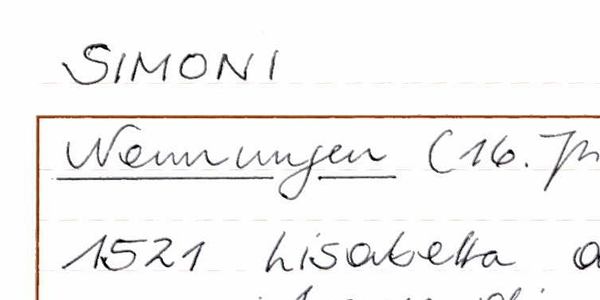 SIMONI
Nennungen (16. Jh
1521 Lisabetta a